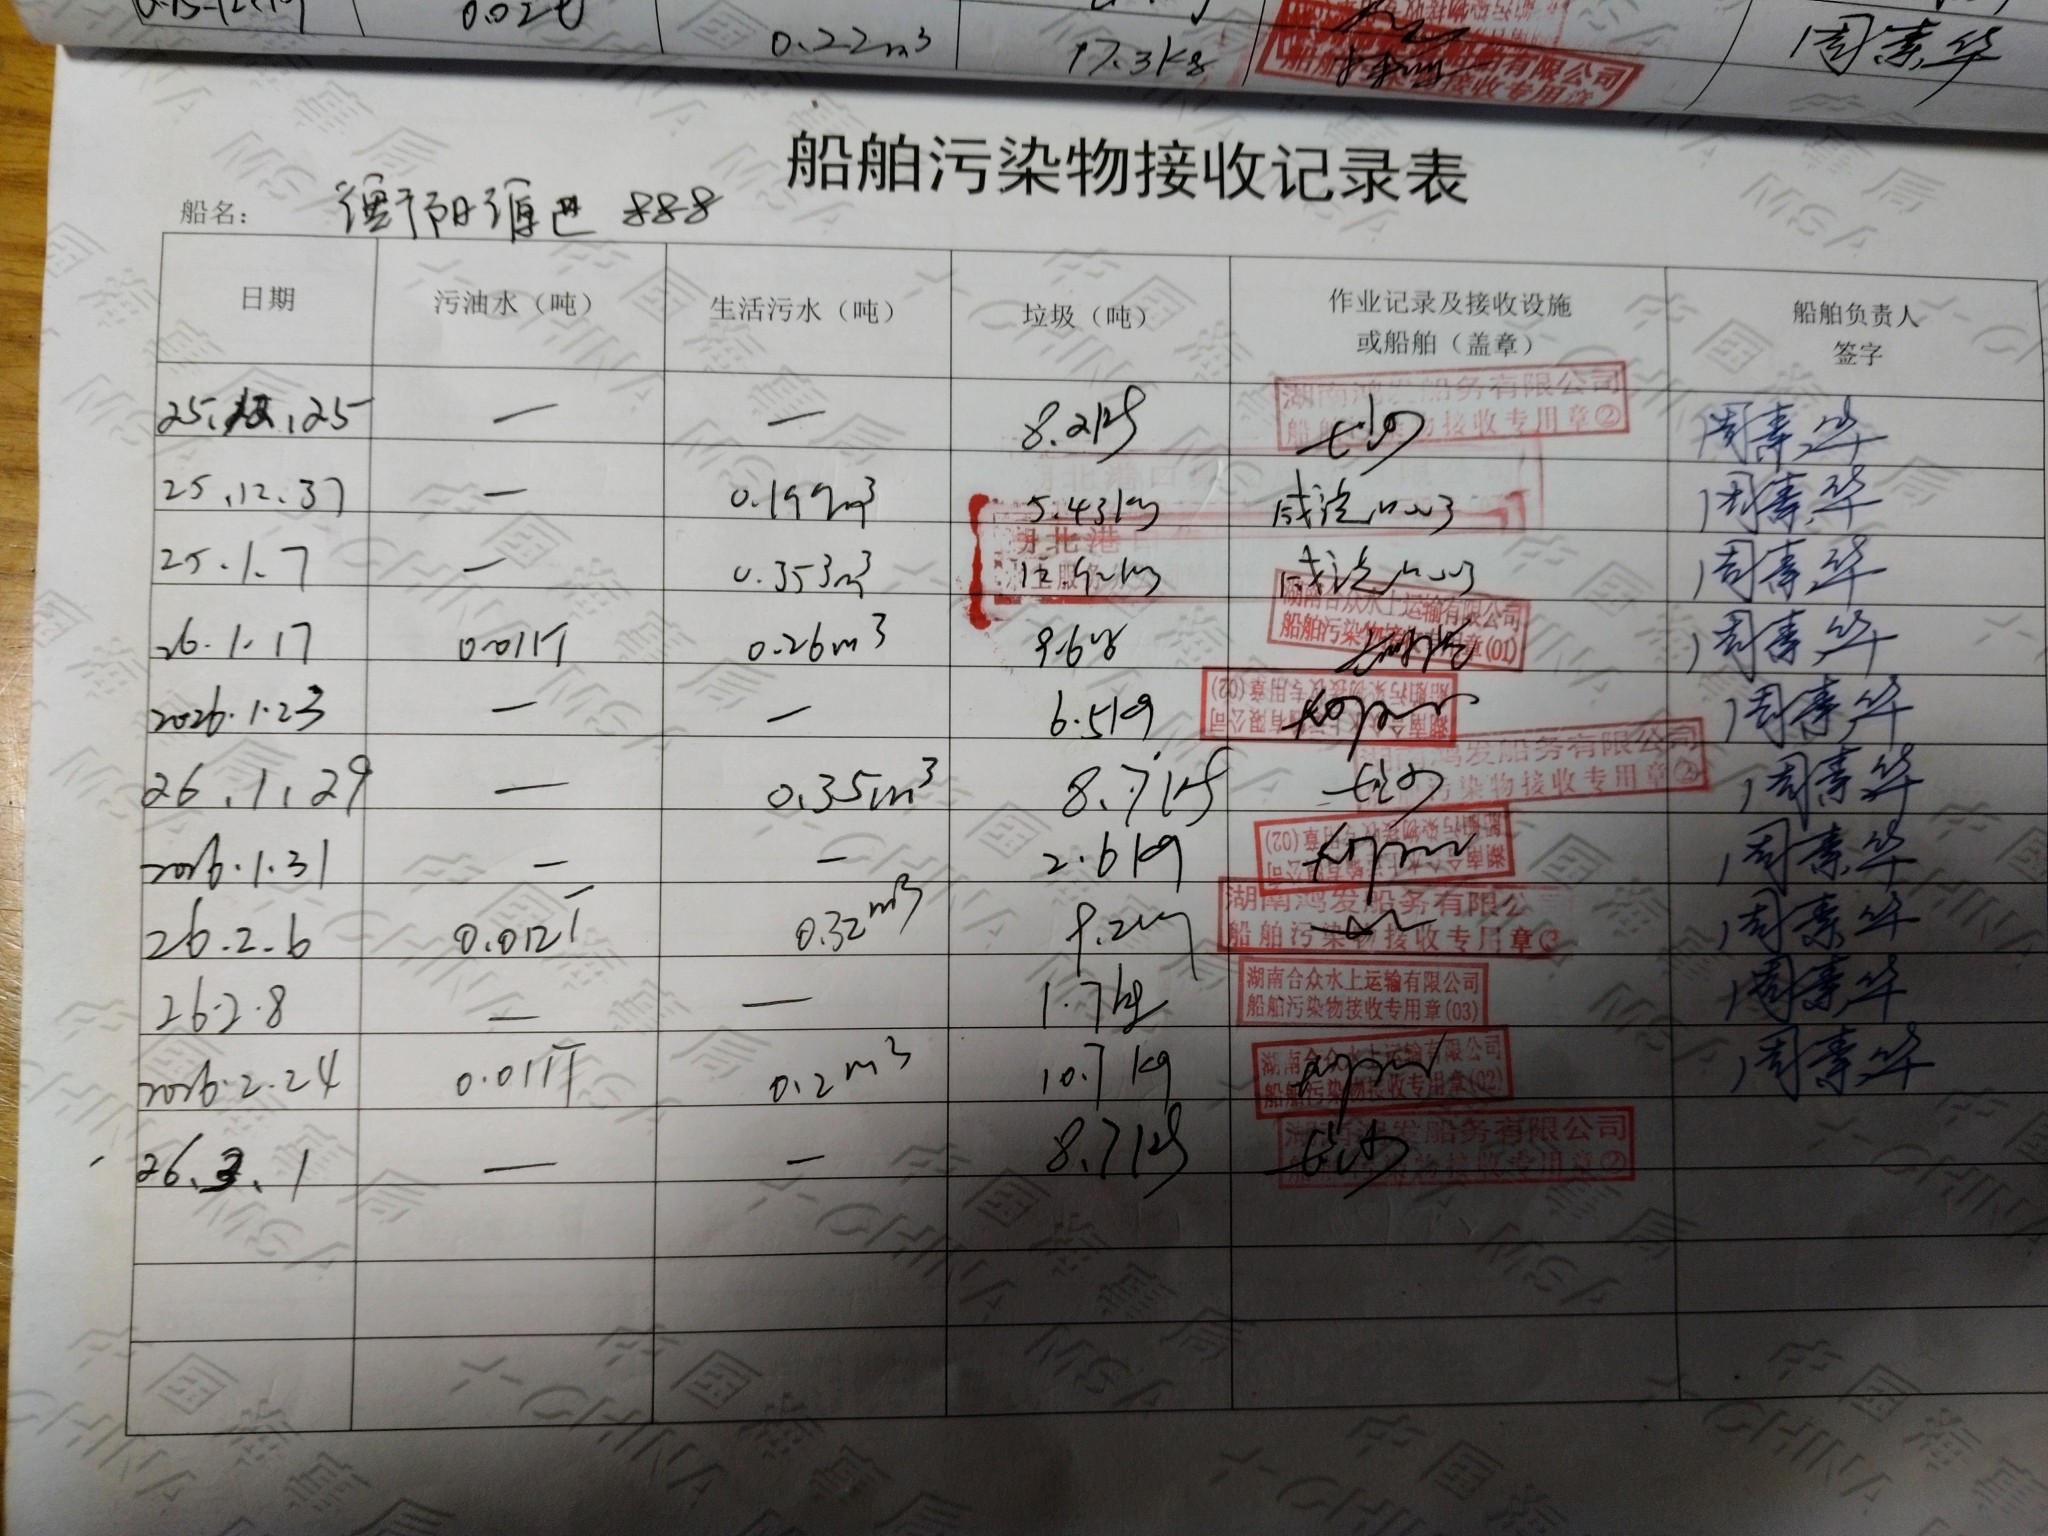 0.02t
0.22m³ 17.3kg 周素华
船舶污染物接收记录表
船名： 888
日期 污油水（吨） 生活污水（吨） 垃圾（吨） 作业记录及接收设施 船舶负责人
或船舶（盖章） 签字
25.12.25 — — 8.2kg 长沙 周素华
湖南鸿发船务有限公司
船舶污染物接收专用章②
— 0.199m³ 5.43kg 周素华
25.1.7 — 0.353m³ 周素华
26.1.17 0.011T 0.26m³ 9.6kg 周素华
湖南合众水上运输有限公司
船舶污染物接收专用章(01)
2026.1.23 — — 6.5kg 周素华
湖南合众水上运输有限公司
船舶污染物接收专用章(02)
26.1.29 — 0.35m³ 8.7kg 长沙 周素华
湖南鸿发船务有限公司
船舶污染物接收专用章②
2026.1.31 — — 2.6kg 周素华
湖南合众水上运输有限公司
船舶污染物接收专用章(02)
26.2.6 0.012T 0.32m³ 9.2kg 周素华
湖南鸿发船务有限公司
船舶污染物接收专用章
26.2.8 — — 1.7kg 周素华
湖南合众水上运输有限公司
船舶污染物接收专用章(03)
2026.2.24 0.011T 0.2m³ 10.7kg 周素华
湖南合众水上运输有限公司
船舶污染物接收专用章(02)
26.3.1 — — 8.7kg 长沙
湖南鸿发船务有限公司
船舶污染物接收专用章②